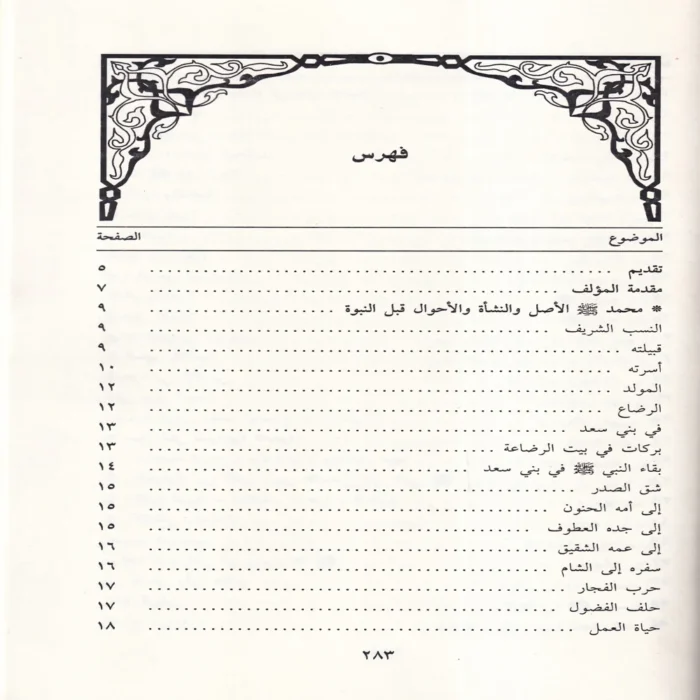 فهرس
الموضوع الصفحة
تقديم ٥
مقدمة المؤلف ٧
* محمد ﷺ الأصل والنشأة والأحوال قبل النبوة ٩
النسب الشريف ٩
قبيلته ٩
أسرته ١٠
المولد ١٢
الرضاع ١٢
في بني سعد ١٣
بركات في بيت الرضاعة ١٣
بقاء النبي ﷺ في بني سعد ١٤
شق الصدر ١٥
إلى أمه الحنون ١٥
إلى جده العطوف ١٥
إلى عمه الشقيق ١٦
سفره إلى الشام ١٦
حرب الفجار ١٧
حلف الفضول ١٧
حياة العمل ١٨
٢٨٣